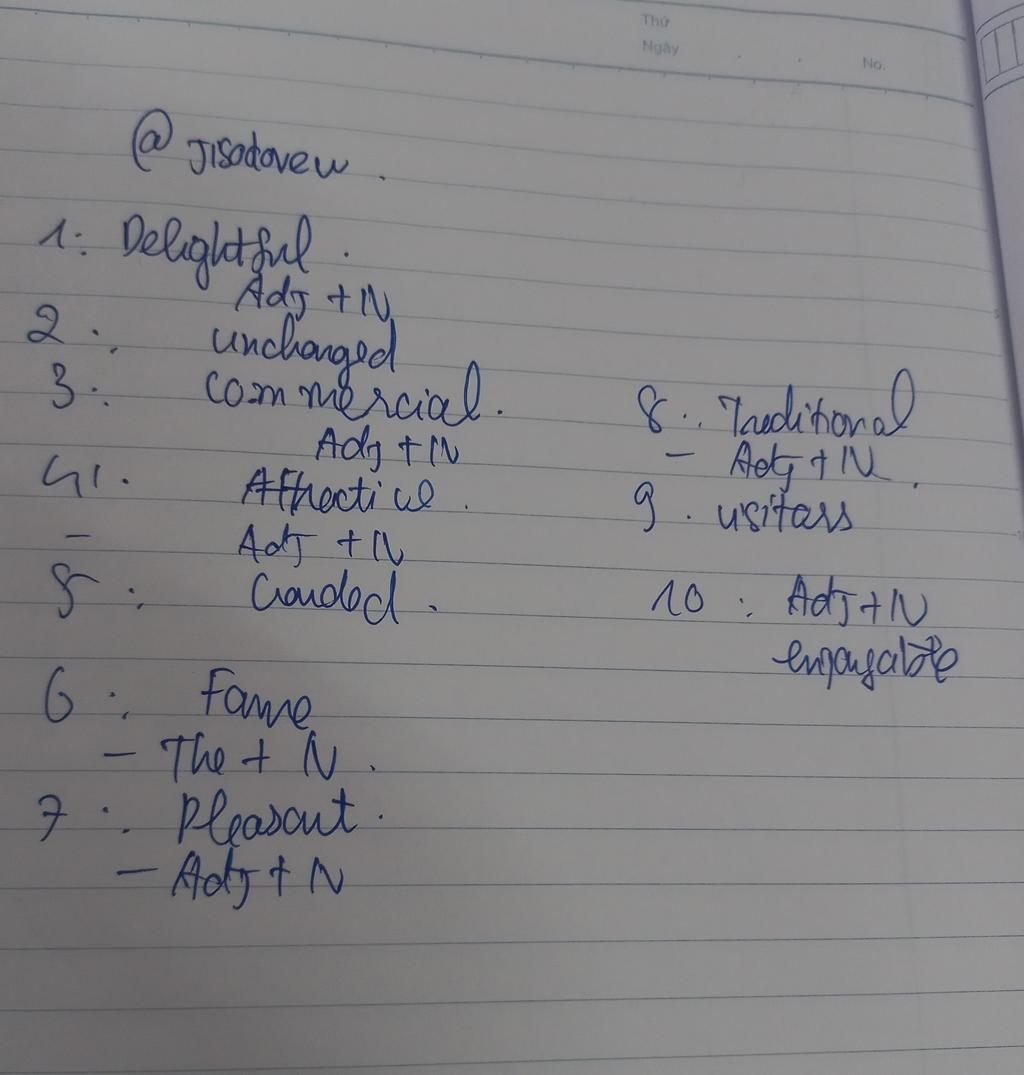 Thứ
Ngày
No.
@ JISodovew.
1: Delightful.
Adj + N
2: unchanged
3: commercial.
Adj + N
4. Attractive.
- Adj + N
5: Crowded.
6: Fame
- The + N.
7: Pleasant.
- Adj + N
8: Traditional
- Adj + N.
9. visitors
10: Adj + N
enjoyable